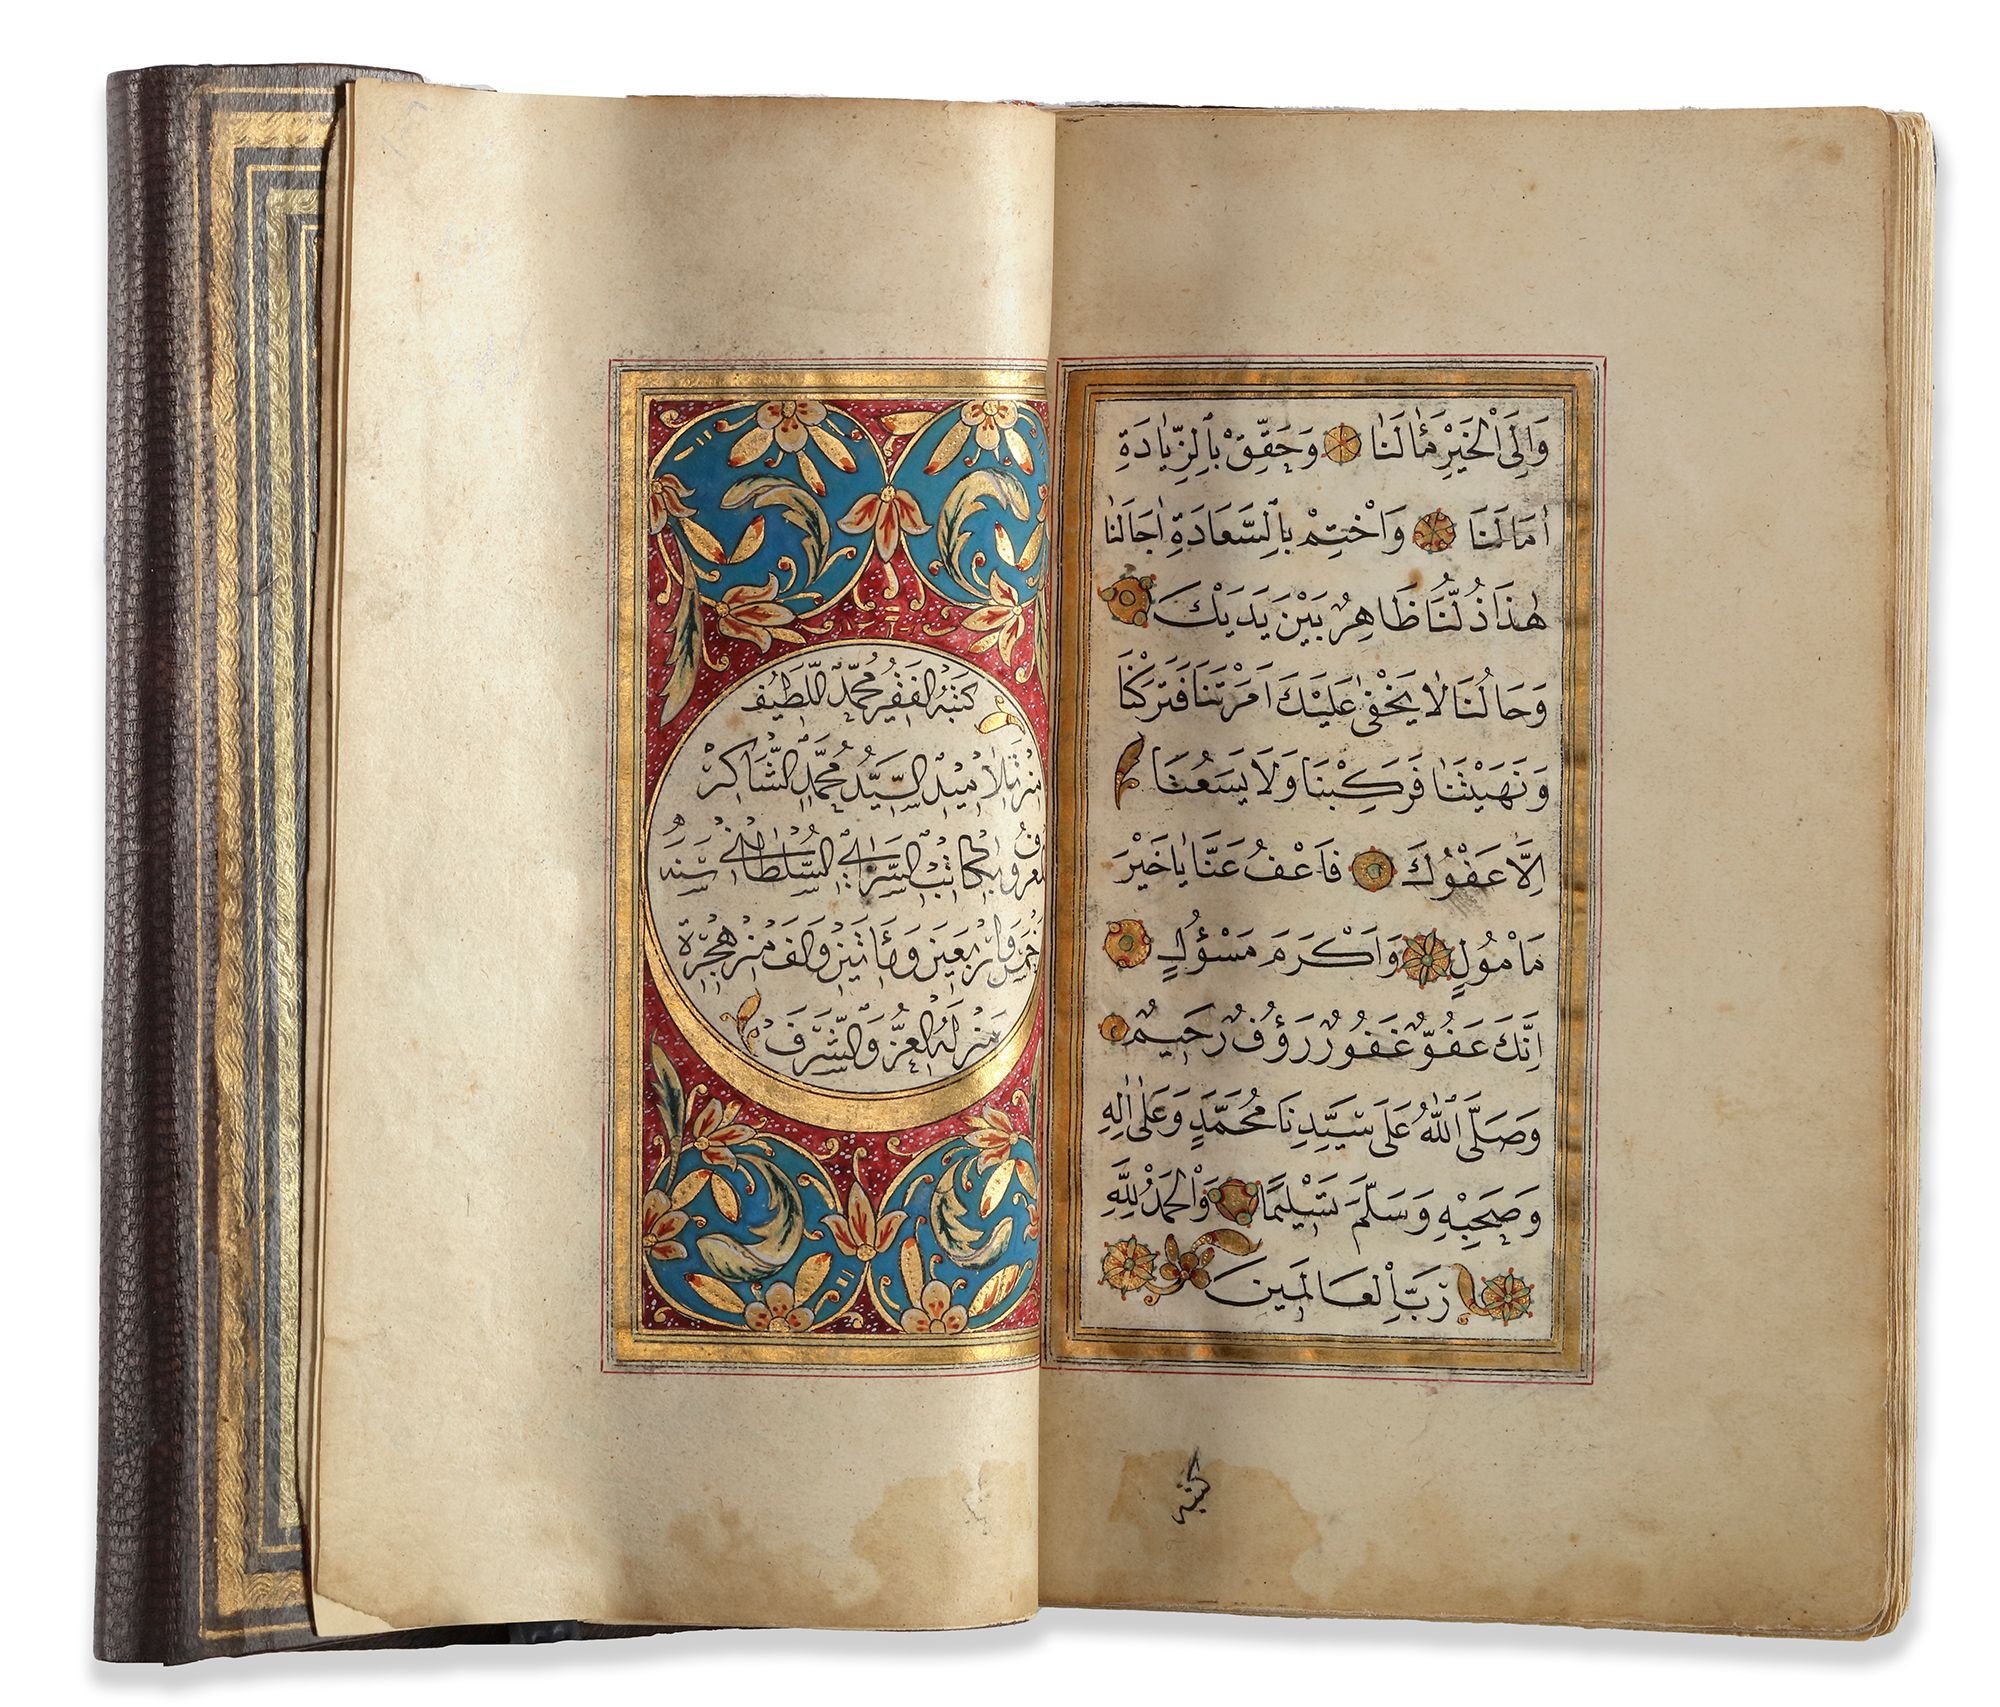 وَاِلَى الْخَيْرِ مَاٰلَنَا وَحَقِّقْ بِالزِّيَادَةِ
اٰمَالَنَا وَاخْتِمْ بِالسَّعَادَةِ اٰجَالَنَا
هٰذَا ذُلُّنَا ظَاهِرٌ بَيْنَ يَدَيْكَ
وَحَالُنَا لَا يَخْفٰى عَلَيْكَ اَمَرْتَنَا فَتَرَكْنَا
وَنَهَيْتَنَا فَرَكِبْنَا وَلَا يَسَعُنَا
اِلَّا عَفْوُكَ فَاعْفُ عَنَّا يَا خَيْرَ
مَاْمُولٍ وَاَكْرَمَ مَسْؤُلٍ
اِنَّكَ عَفُوٌّ غَفُورٌ رَؤُفٌ رَحِيمٌ
وَصَلَّى اللّٰهُ عَلٰى سَيِّدِنَا مُحَمَّدٍ وَعَلٰى اٰلِهِ
وَصَحْبِهِ وَسَلَّمَ تَسْلِيمًا وَالْحَمْدُ لِلّٰهِ
رَبِّ الْعَالَمِينَ
كتبه
كتبه الفقير محمد اللطيف
من تلاميذ السيد محمد الشاكر
المعروف بكاتب السراى السلطانى سنه
خمس واربعين ومأتين والف من هجرة
من له العز والشرف